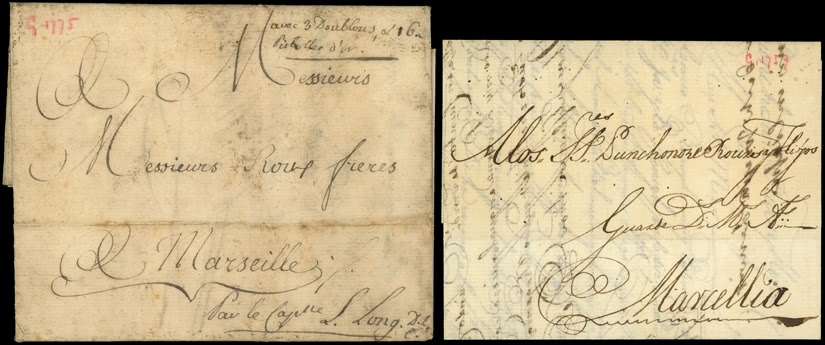 G. 1775
avec 3 Doublons, & 16
Pistolles d'or.
A Messieurs
Messieurs Roux freres
A Marseille
Par le Capne. L. Long. D. L.
G. 1759
A los SSres. Dn. honore Roux y Hijos
Guarde Ds. Ms. As.
Marcellia